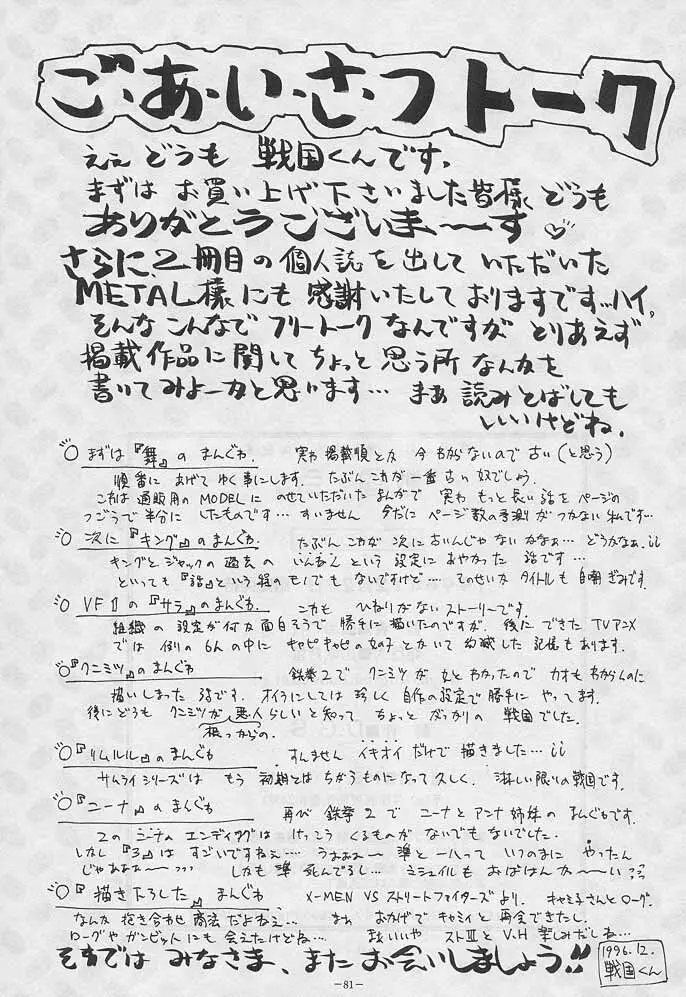 ご・あ・い・さ・つトーク
ええ どうも 戦国くんです。
まずは お買い上げ下さいました皆様 どうも
ありがとうございま〜〜す♡
さらに、2冊目の個人誌を出していただいた
METAL様にも感謝いたしておりますです…ハイ。
そんなこんなでフリートークなんですが とりあえず
掲載作品に関してちょっと思う所なんかを
書いてみよーかと思います… まあ 読みとばしても
いいけどね。
◎まずは『舞』のまんがね. 実わ掲載順とか今わからないので古い(と思う)
順番にあげてゆく事にします. たぶんこれが一番古い奴でしょう.
これは通販用のMODELにのせていただいたまんがで 実わもっと長い話をページの
つごうで半分にしたものです… すいません 今だにページ数の予測がつかない私です…
◎次に『キング』のまんがね. たぶんこれが次に古いんじゃないかなぁ… どうかなぁ.
キングとジャックの過去のいんねんという設定におやかった 話です…
といっても『話』という程のモノでもないですけど… そのせいかタイトルも自嘲ぎみです.
◎VFⅡの『サラ』のまんがね. これもひねりがないストーリーです.
組織の設定が何か面白そうで勝手に描いたのですが. 後にできたTVアニメ
では 例の6人の中にキャピキャピの女の子とかいて幻滅した記憶もあります.
◎『クニミツ』のまんがね 鉄拳2でクニミツが女とわかったのでカオもわからんのに
描いしまった話です. オイラにしては珍しく自作の設定で勝手にやってます.
後にどうもクニミツが悪人らしいと知って ちょっとがっかりの戦国でした.
根っからの.
◎『リムルル』のまんがね すんません イキオイだけで描きました…
サムライシリーズは もう初期とはちがうものになって久しく. 淋しい限りの戦国です.
◎『ニーナ』のまんがね 再び鉄拳2でニーナとアンナ姉妹のまんがです.
2の エンディングは けっこうくるものがないでもないでした.
しかし『3』は すごいですねえ… うおぉぉ〜準と一八って いつのまにやったん
じゃあぁぁ〜 しかも準死んでるし… ミシェイルもおばはんか〜い
◎『描き下ろした』まんがね X-MEN VS ストリートファイターズより. キャミ子さんとローグ.
なんか抱き合わせ商法だよねえ… まあ おかげでキャミイと再会できたし.
ローグやガンビットにも会えたけどね… まあいいや ストⅢとV・H楽しみだしね…
それでは みなさま、またお会いしましょう!!
1996.12.
戦国くん
-81-